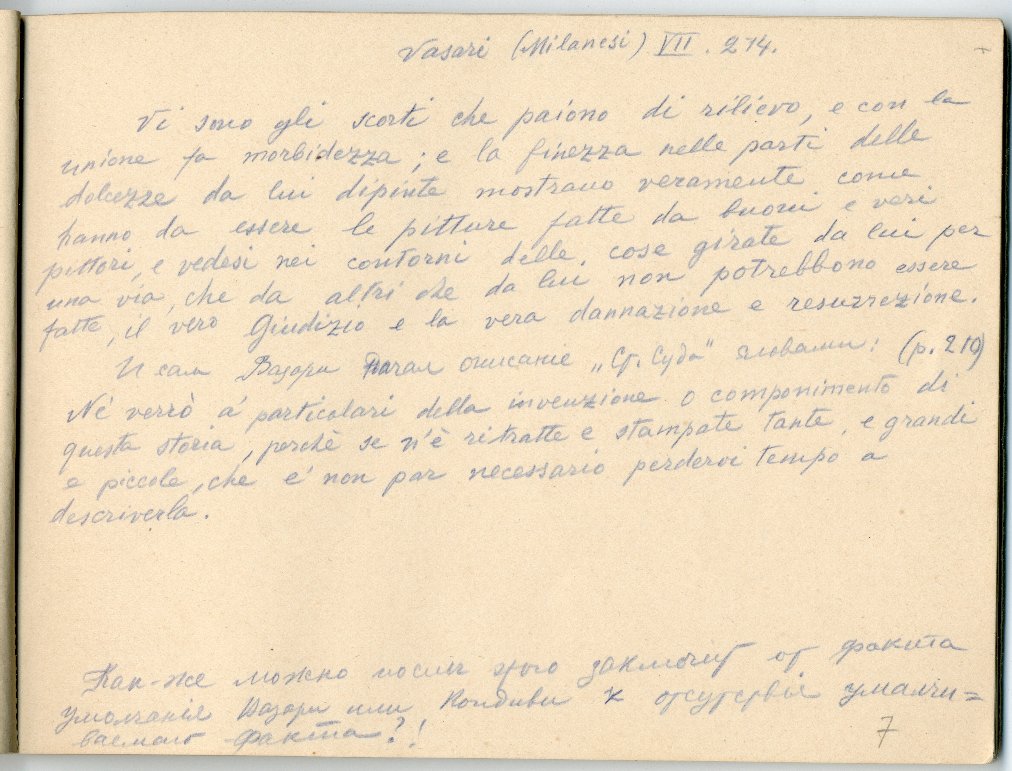 Vasari (Milanesi) VII. 214.
Vi sono gli scorti che paiono di rilievo, e con la
unione fa morbidezza; e la finezza nelle parti delle
dolcezze da lui dipinte mostrano veramente come
hanno da essere le pitture fatte da buoni e veri
pittori, e vedesi nei contorni delle cose girate da lui per
una via, che da altri che da lui non potrebbono essere
fatte, il vero Giudizio e la vera dannazione e resurrezione.
И сам Вазари начал описанiе „Ст. Суда" словами: (p. 210)
Nè verrò a' particolari della invenzione o componimento di
questa storia, perchè se n'è ritratte e stampate tante, e grandi
e piccole, che e' non par necessario perdervi tempo a
descriverla.
Как-же можно после этого заключить от факта
умолчанiя Вазари или Кондиви к отсутствiю умалчи=
ваемого факта?!
7